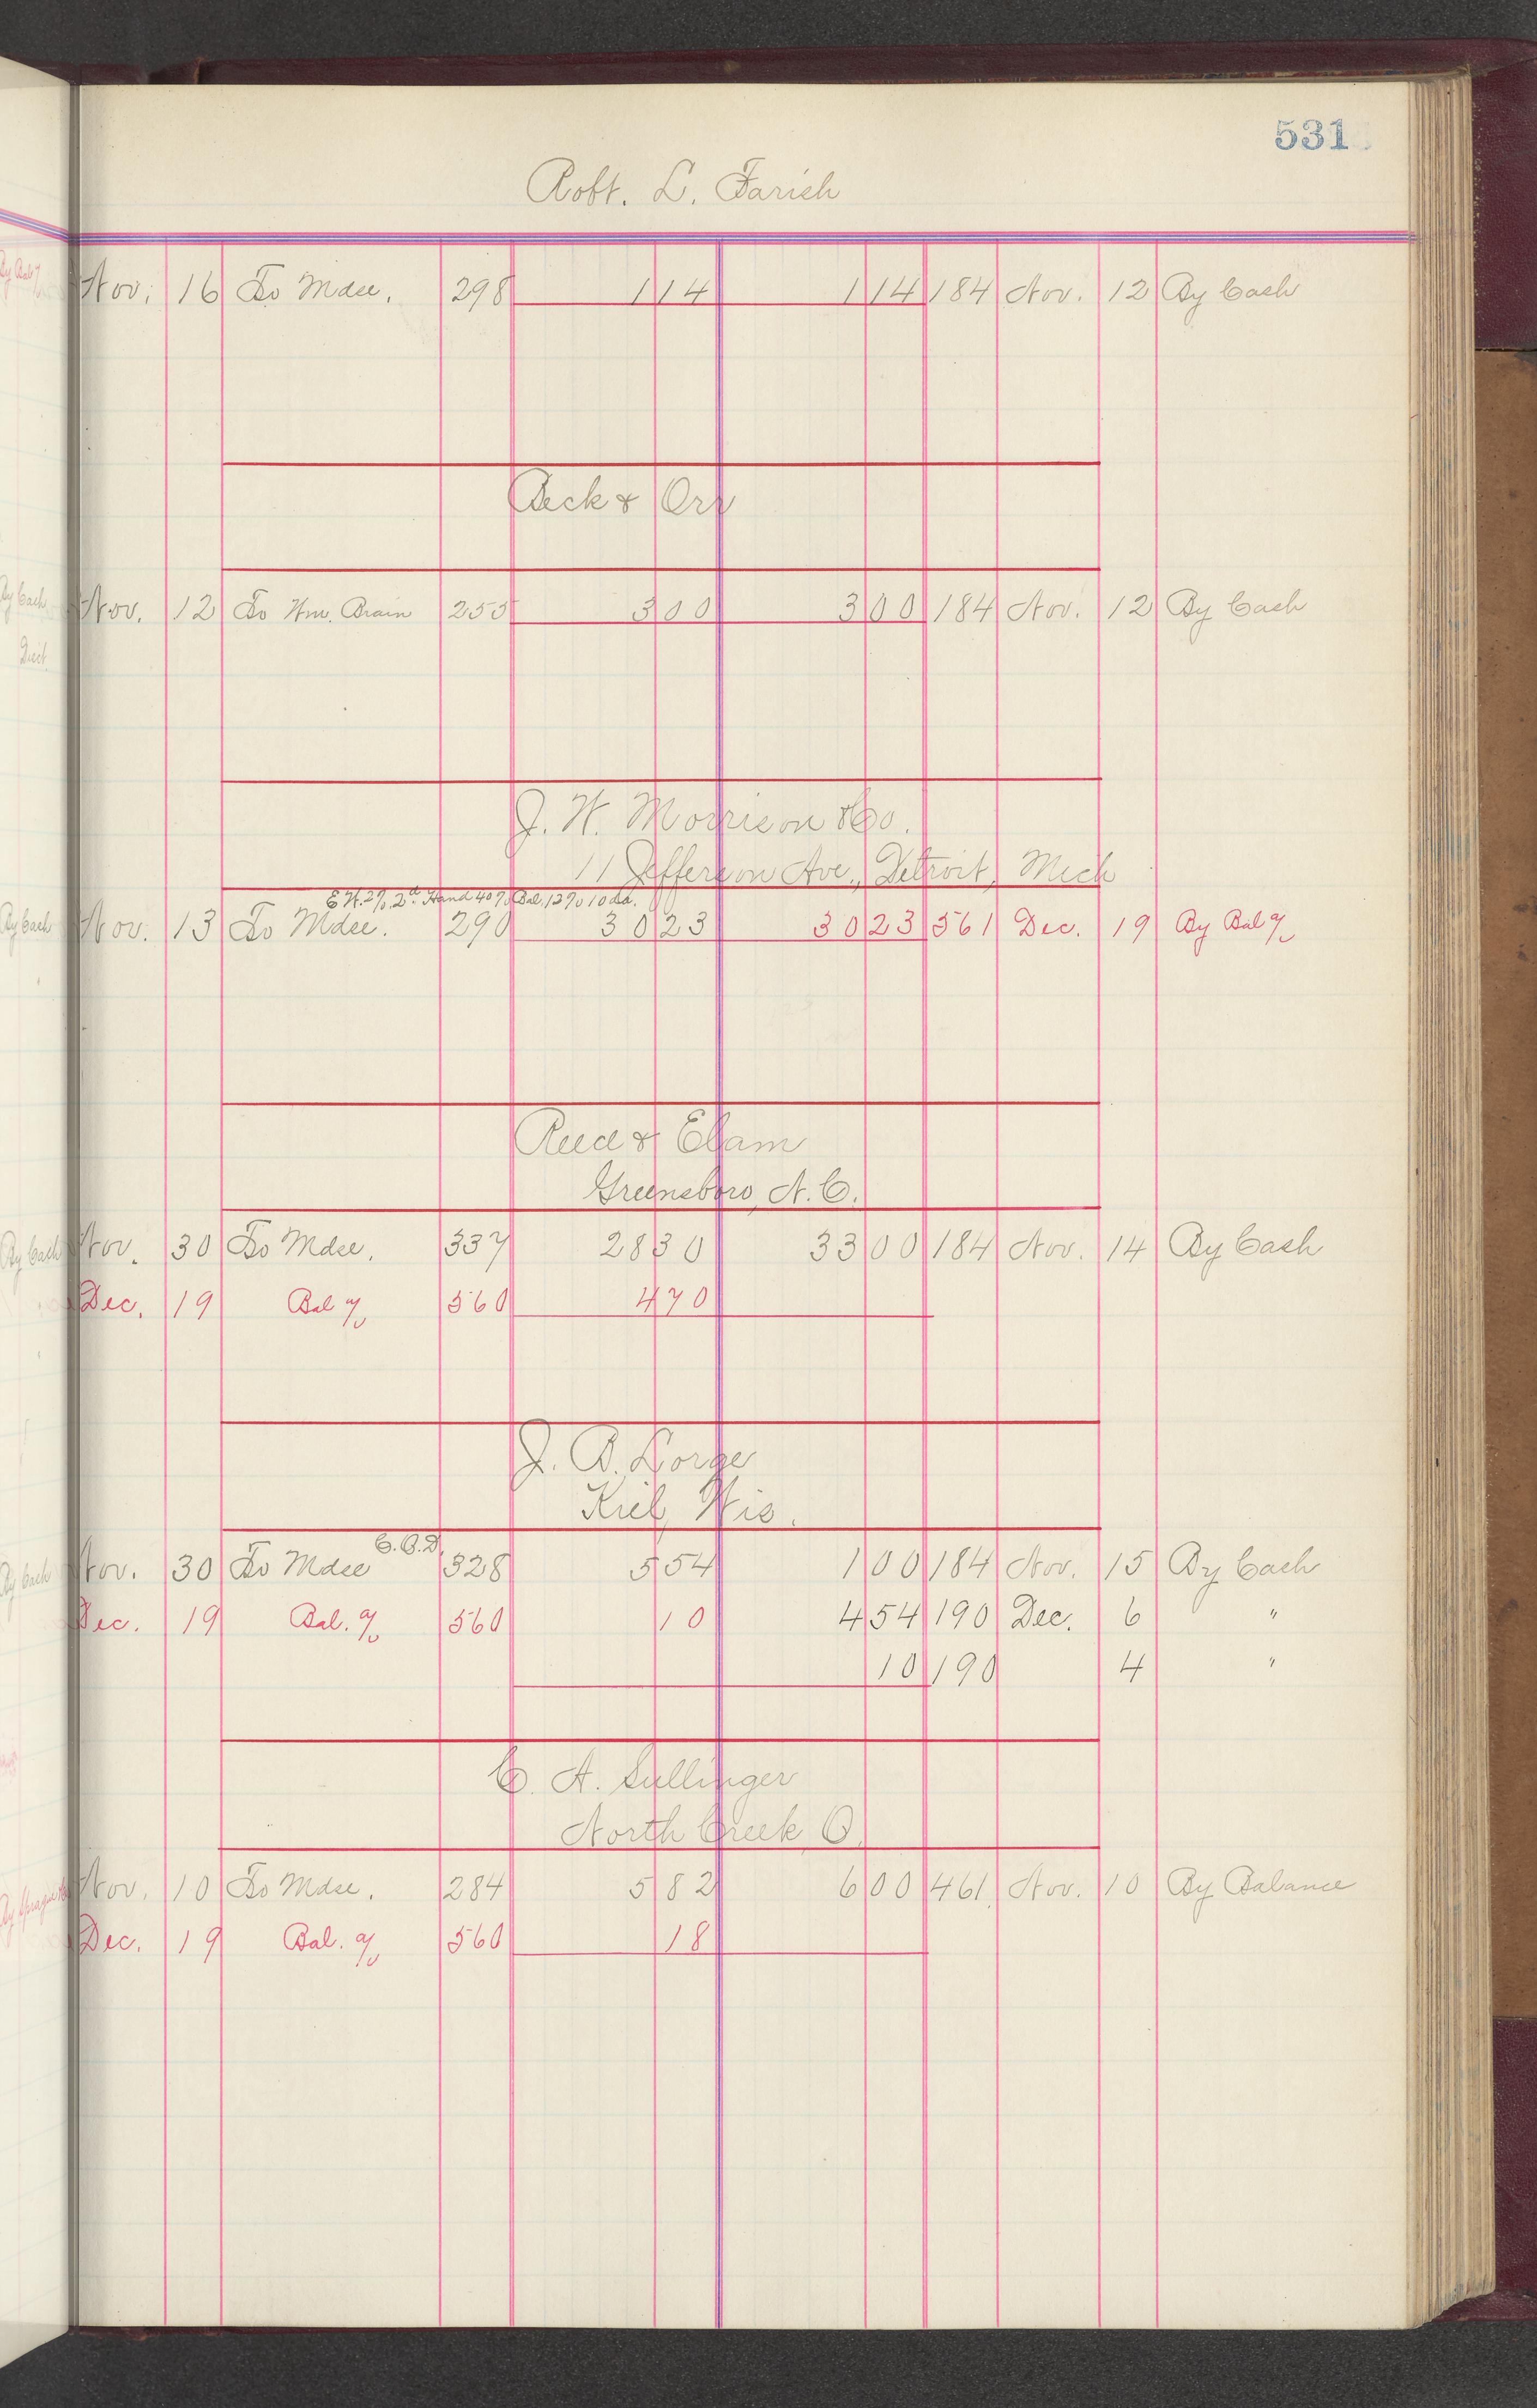 531
Robt. L. Farish
Nov. 16 To Mdse. 298 1 14 1 14 184 Nov. 12 By Cash
Beck & Orr
Nov. 12 To Wm. Brain 255 3 00 3 00 184 Nov. 12 By Cash
J. W. Morrison & Co.
11 Jefferson Ave., Detroit, Mich
E.W. 2% 2nd Hand 40% Bal. 12% 10 da.
Nov. 13 To Mdse. 290 30 23 30 23 561 Dec. 19 By Bal %
Reed & Elam
Greensboro, N.C.
Nov. 30 To Mdse. 337 28 30 33 00 184 Nov. 14 By Cash
Dec. 19 Bal % 560 4 70
J. B. Lorge
Kiel, Wis.
C.O.D.
Nov. 30 To Mdse 328 5 54 1 00 184 Nov. 15 By Cash
Dec. 19 Bal. % 560 10 4 54 190 Dec. 6 "
10 190 4 "
C. A. Sullinger
North Creek, O.
Nov. 10 To Mdse. 284 5 82 6 00 461 Nov. 10 By Balance
Dec. 19 Bal. % 560 18